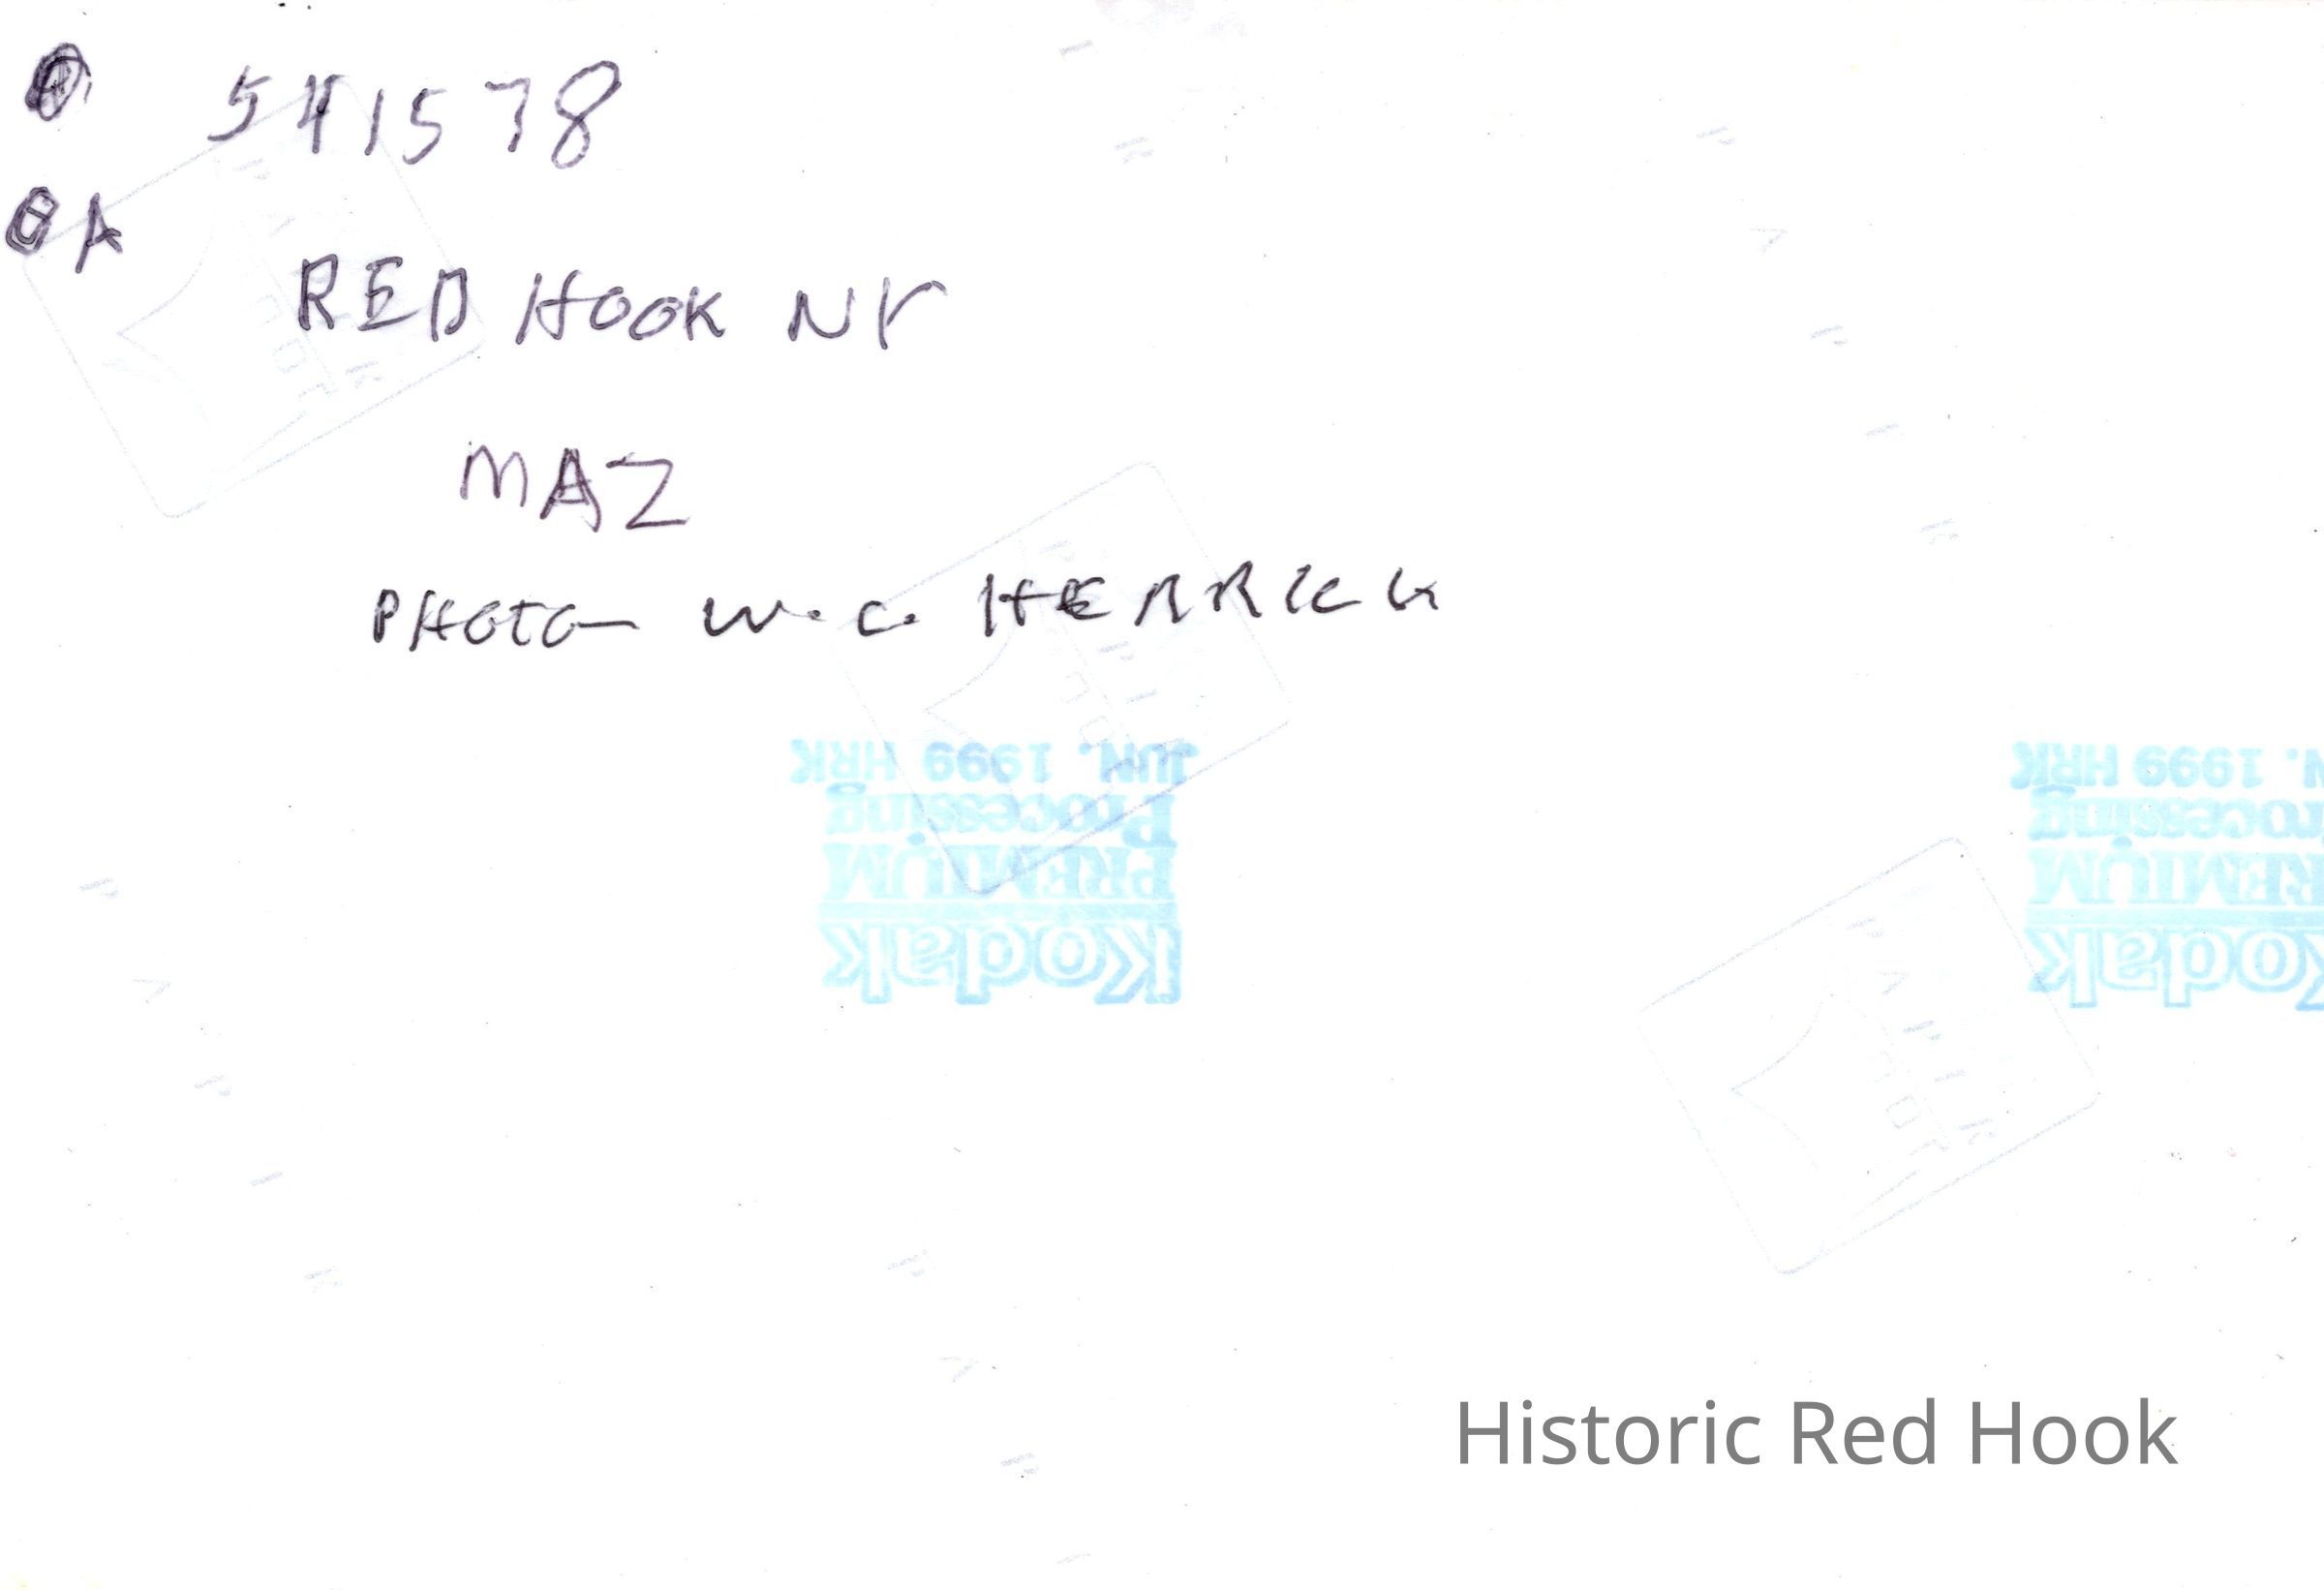 541578
A
RED HOOK NY
MAZ
PHOTO W. C. HERRICK
JUN. 1999 HRK
Processing
PREMIUM
Kodak
N. 1999 HRK
rocessing
REMIUM
Kodak
Historic Red Hook